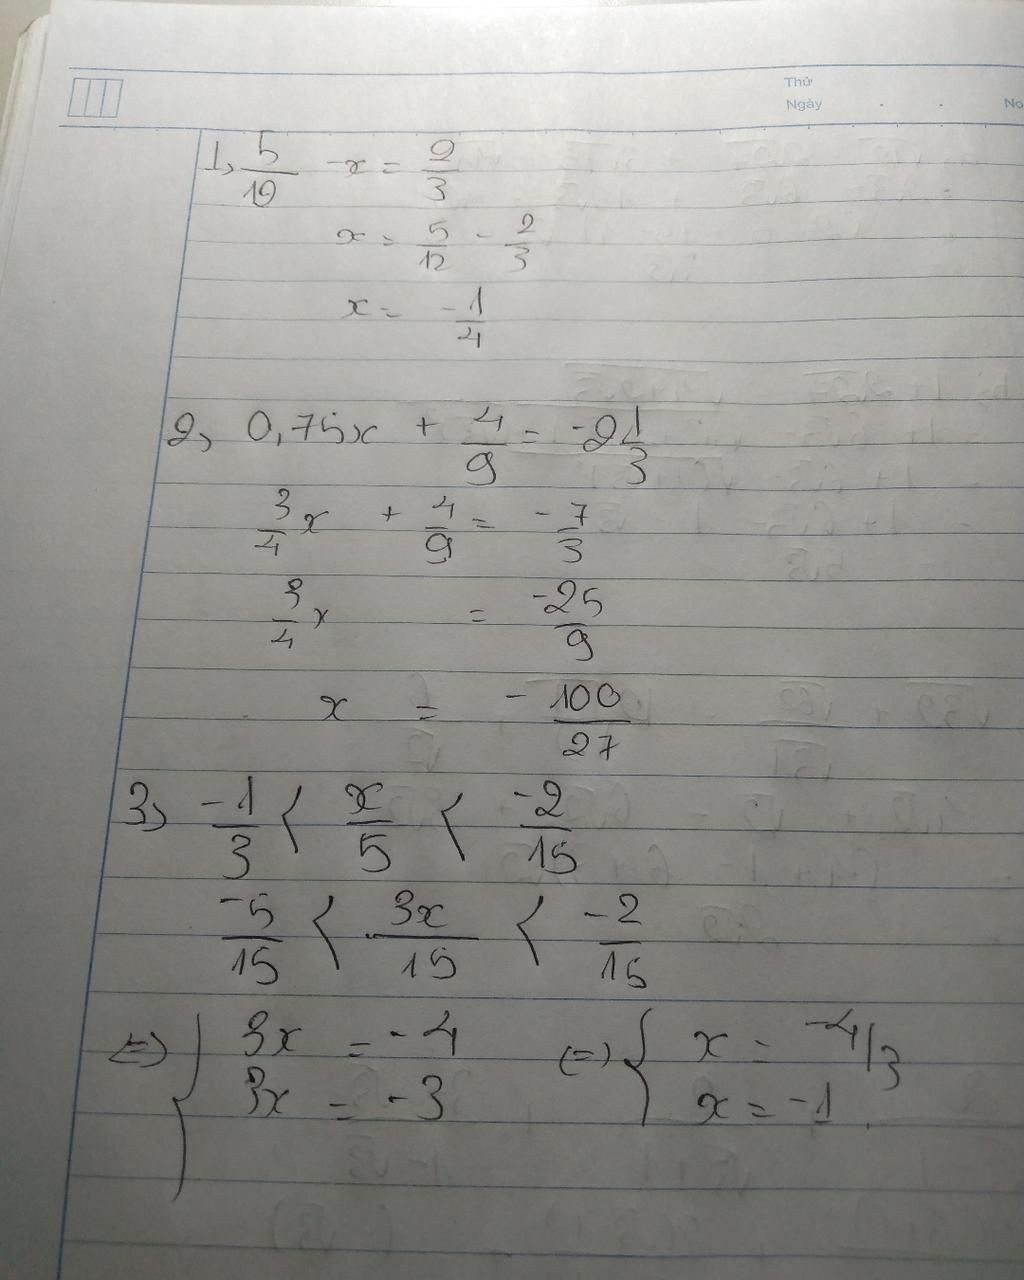 Thứ
Ngày . . No
1, 5/12 - x = 2/3
x = 5/12 - 2/3
x = -1/4
2, 0,75x + 4/9 = -2 1/3
3/4 x + 4/9 = -7/3
3/4 x = -25/9
x = -100/27
3, -1/3 < x/5 < -2/15
-5/15 < 3x/15 < -2/15
(=) { 3x = -4 (=) { x = -4/3
3x = -3 x = -1